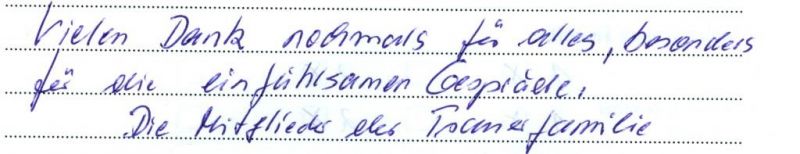 Vielen Dank nochmals für alles, besonders
für die einfühlsamen Gespräche.
Die Mitglieder der Trauerfamilie